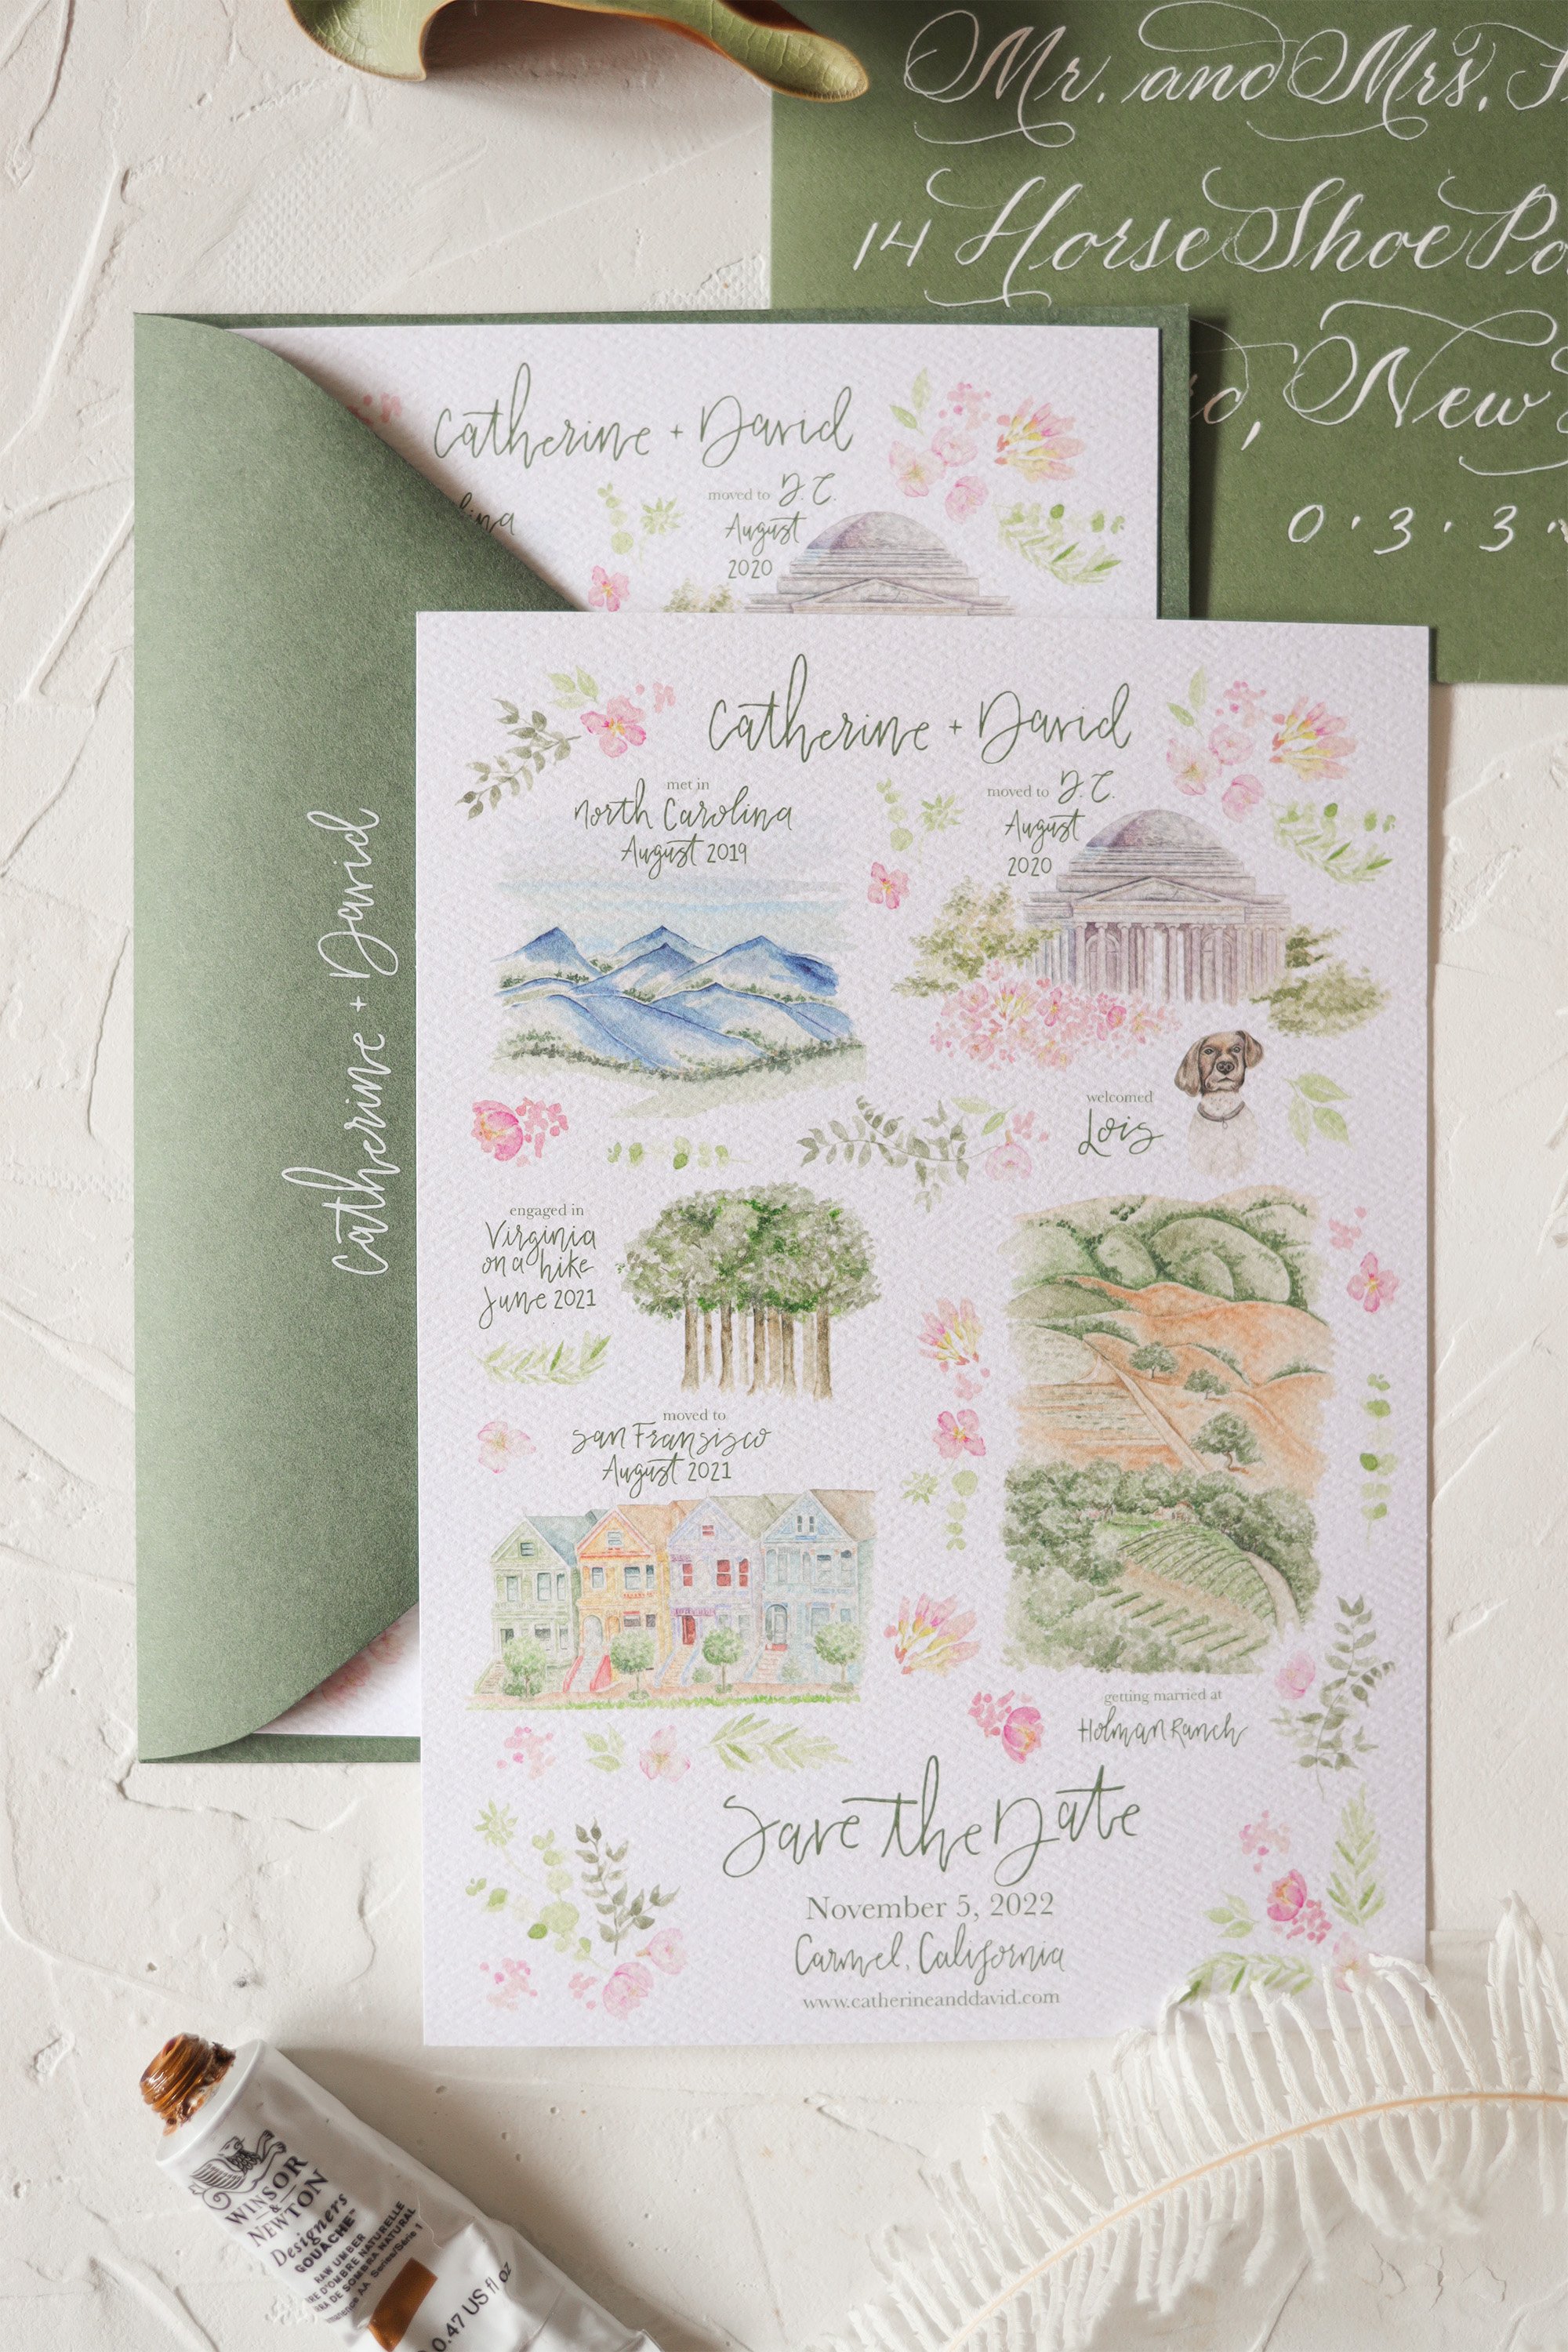 Mr. and Mrs.
14 Horse Shoe
New
0.3.3.
Catherine + David
moved to D.C.
August
2020
Catherine + David
Catherine + David
met in
North Carolina
August 2019
moved to D.C.
August
2020
welcomed
Lois
engaged in
Virginia
on a hike
June 2021
moved to
San Fransisco
August 2021
getting married at
Holman Ranch
Save the Date
November 5, 2022
Carmel, California
www.catherineanddavid.com
WINSOR
&
NEWTON
Designers
GOUACHE™
RAW UMBER
D'OMBRE NATURELLE
DE SOMBRA NATURAL
AA Series/Série 1
0.47 US fl oz